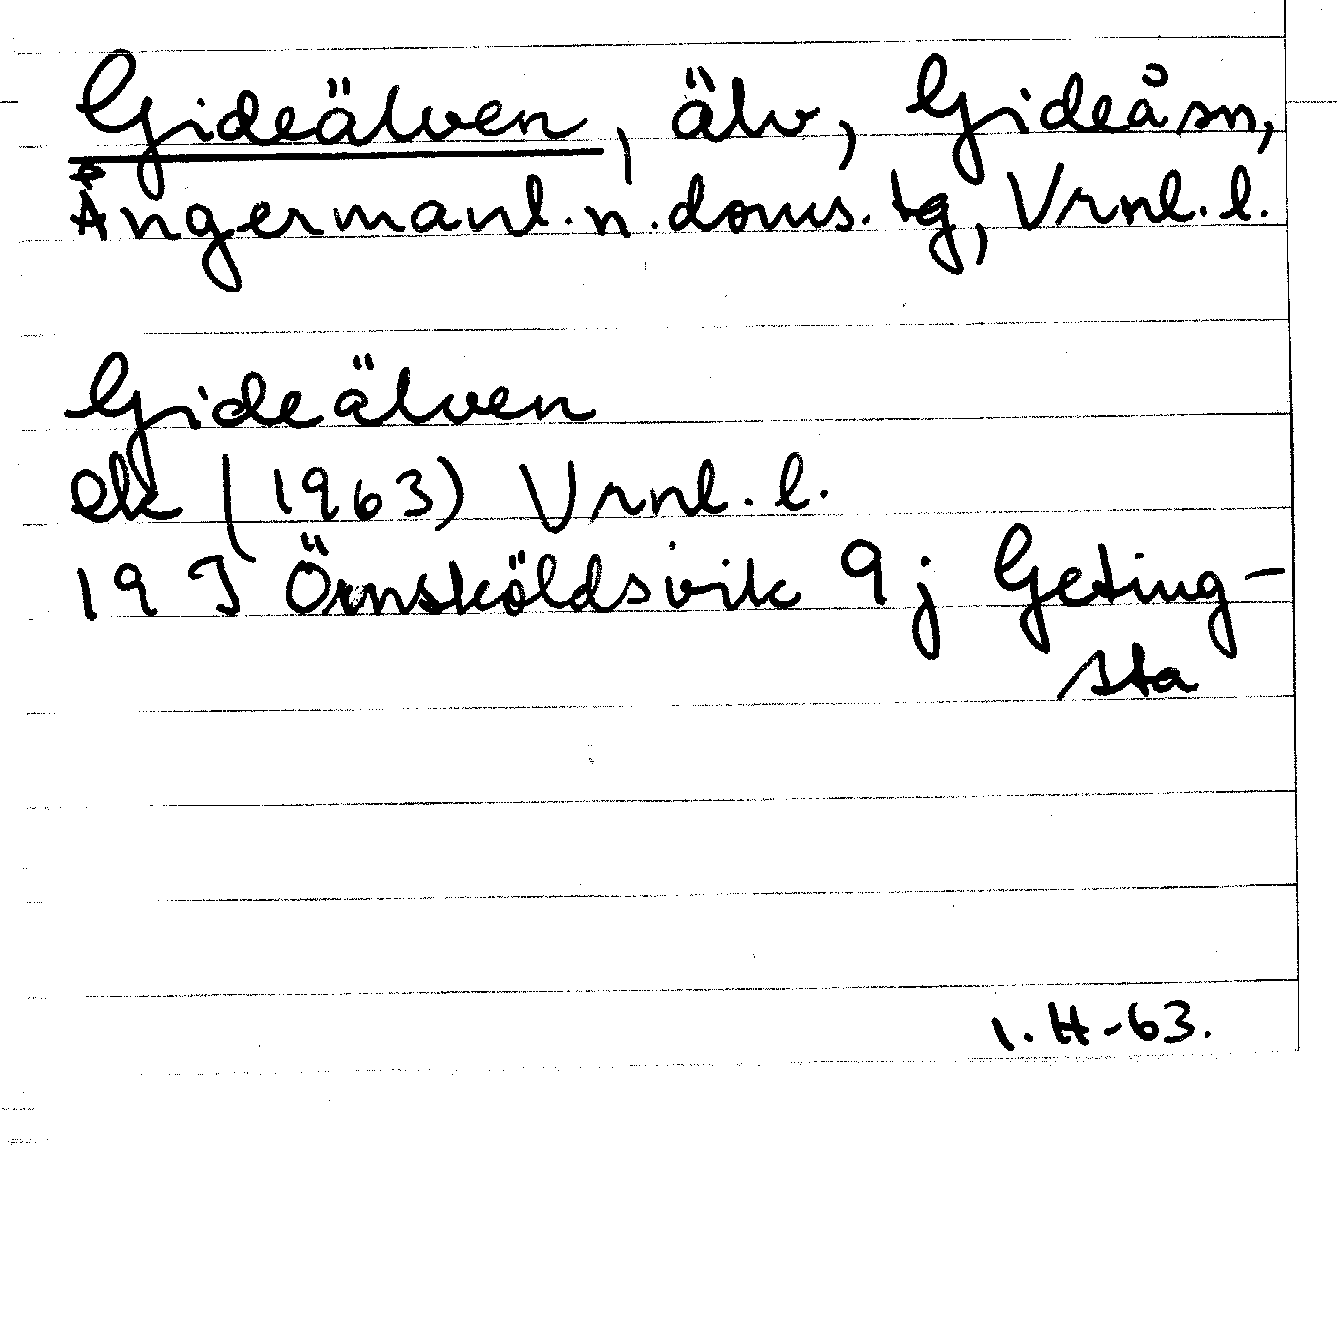 Gideälven, älv, Gideå sn,
Ångermanl. n. doms. tg, Vrnl. l.
Gideälven
ek (1963) Vrnl. l.
19 J Örnsköldsvik 9 j Geting-
sta
1. H-63.